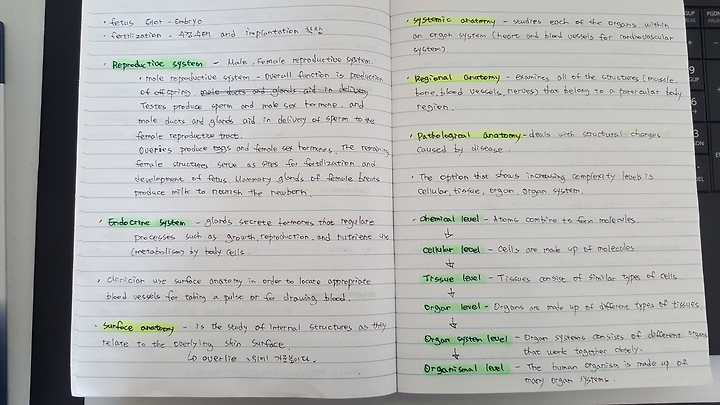 · fetus not - Embryo
· fertilization - 수정 and implantation 착상
· Reproductive system - Male, female reproductive system.
· male reproductive system - Overall function is production
of offspring male ducts and glands aid in delivery
Testes produce sperm and male sex hormone, and
male ducts and glands aid in delivery of sperm to the
female reproductive tract.
Overies produce eggs and female sex hormones. The remaining
female structures serve as sites for fertilization and
development of fetus. Mammary glands of female breats
produce milk to nourish the newborn.
· Endocrine system - glands secrete hormones that regulate
processes such as growth, reproduction, and nutrient use
(metabolism) by body cells.
· clinician use surface anatomy in order to locate appropriate
blood vessels for taking a pulse or for drawing blood.
· Surface anatomy - is the study of internal structures as they
relate to the overlying skin surface.
↳ overlie :
· systemic anatomy - studies each of the organs within
an organ system (heart and blood vessels for cardiovascular
system)
· Regional anatomy - examines all of the structures (muscle,
bone, blood vessels, nerves) that belong to a particular body
region.
· Pathological anatomy - deals with structural changes
caused by disease.
· The option that shows increasing complexity levels is
cellular, tissue, organ, organ system.
· chemical level - Atoms combine to form molecules.
↓
cellular level - Cells are made up of molecules
↓
Tissue level - Tissues consist of similar types of cells
↓
organ level - Organs are made up of different types of tissues.
↓
Organ system level - Organ systems consists of different organs
↓ that work together closely.
Organismal level - The human organism is made up of
many organ systems.